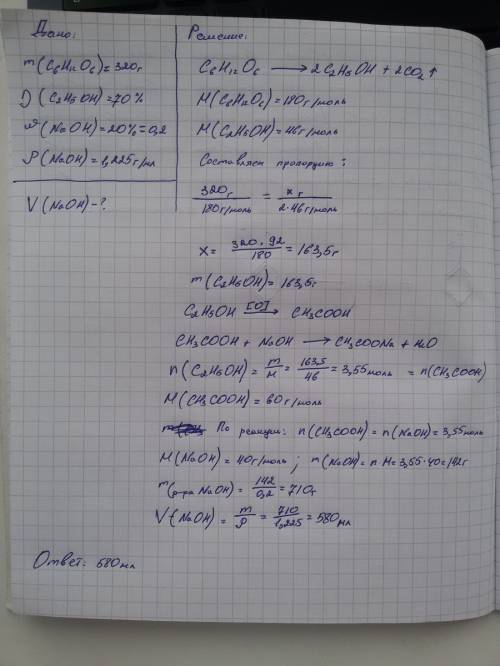 Дано:
m(C6H12O6)=320г
η(C2H5OH)=70%
ω(NaOH)=20%=0,2
ρ(NaOH)=1,225г/мл
V(NaOH)-?
Решение:
C6H12O6 → 2C2H5OH + 2CO2↑
M(C6H12O6)=180г/моль
M(C2H5OH)=46г/моль
Составляем пропорцию:
320г/180г/моль = xг/2·46г/моль
x = 320·92/180 = 163,5г
m(C2H5OH)=163,5г
C2H5OH [O]→ CH3COOH
CH3COOH + NaOH → CH3COONa + H2O
n(C2H5OH) = m/M = 163,5/46 = 3,55моль = n(CH3COOH)
M(CH3COOH)=60г/моль
По реакции: n(CH3COOH)=n(NaOH)=3,55моль
M(NaOH)=40г/моль; m(NaOH)=n·M=3,55·40=142г
m(р-ра NaOH) = 142/0,2 = 710г
V(NaOH) = m/ρ = 710/1,225 = 580мл
Ответ: 580мл